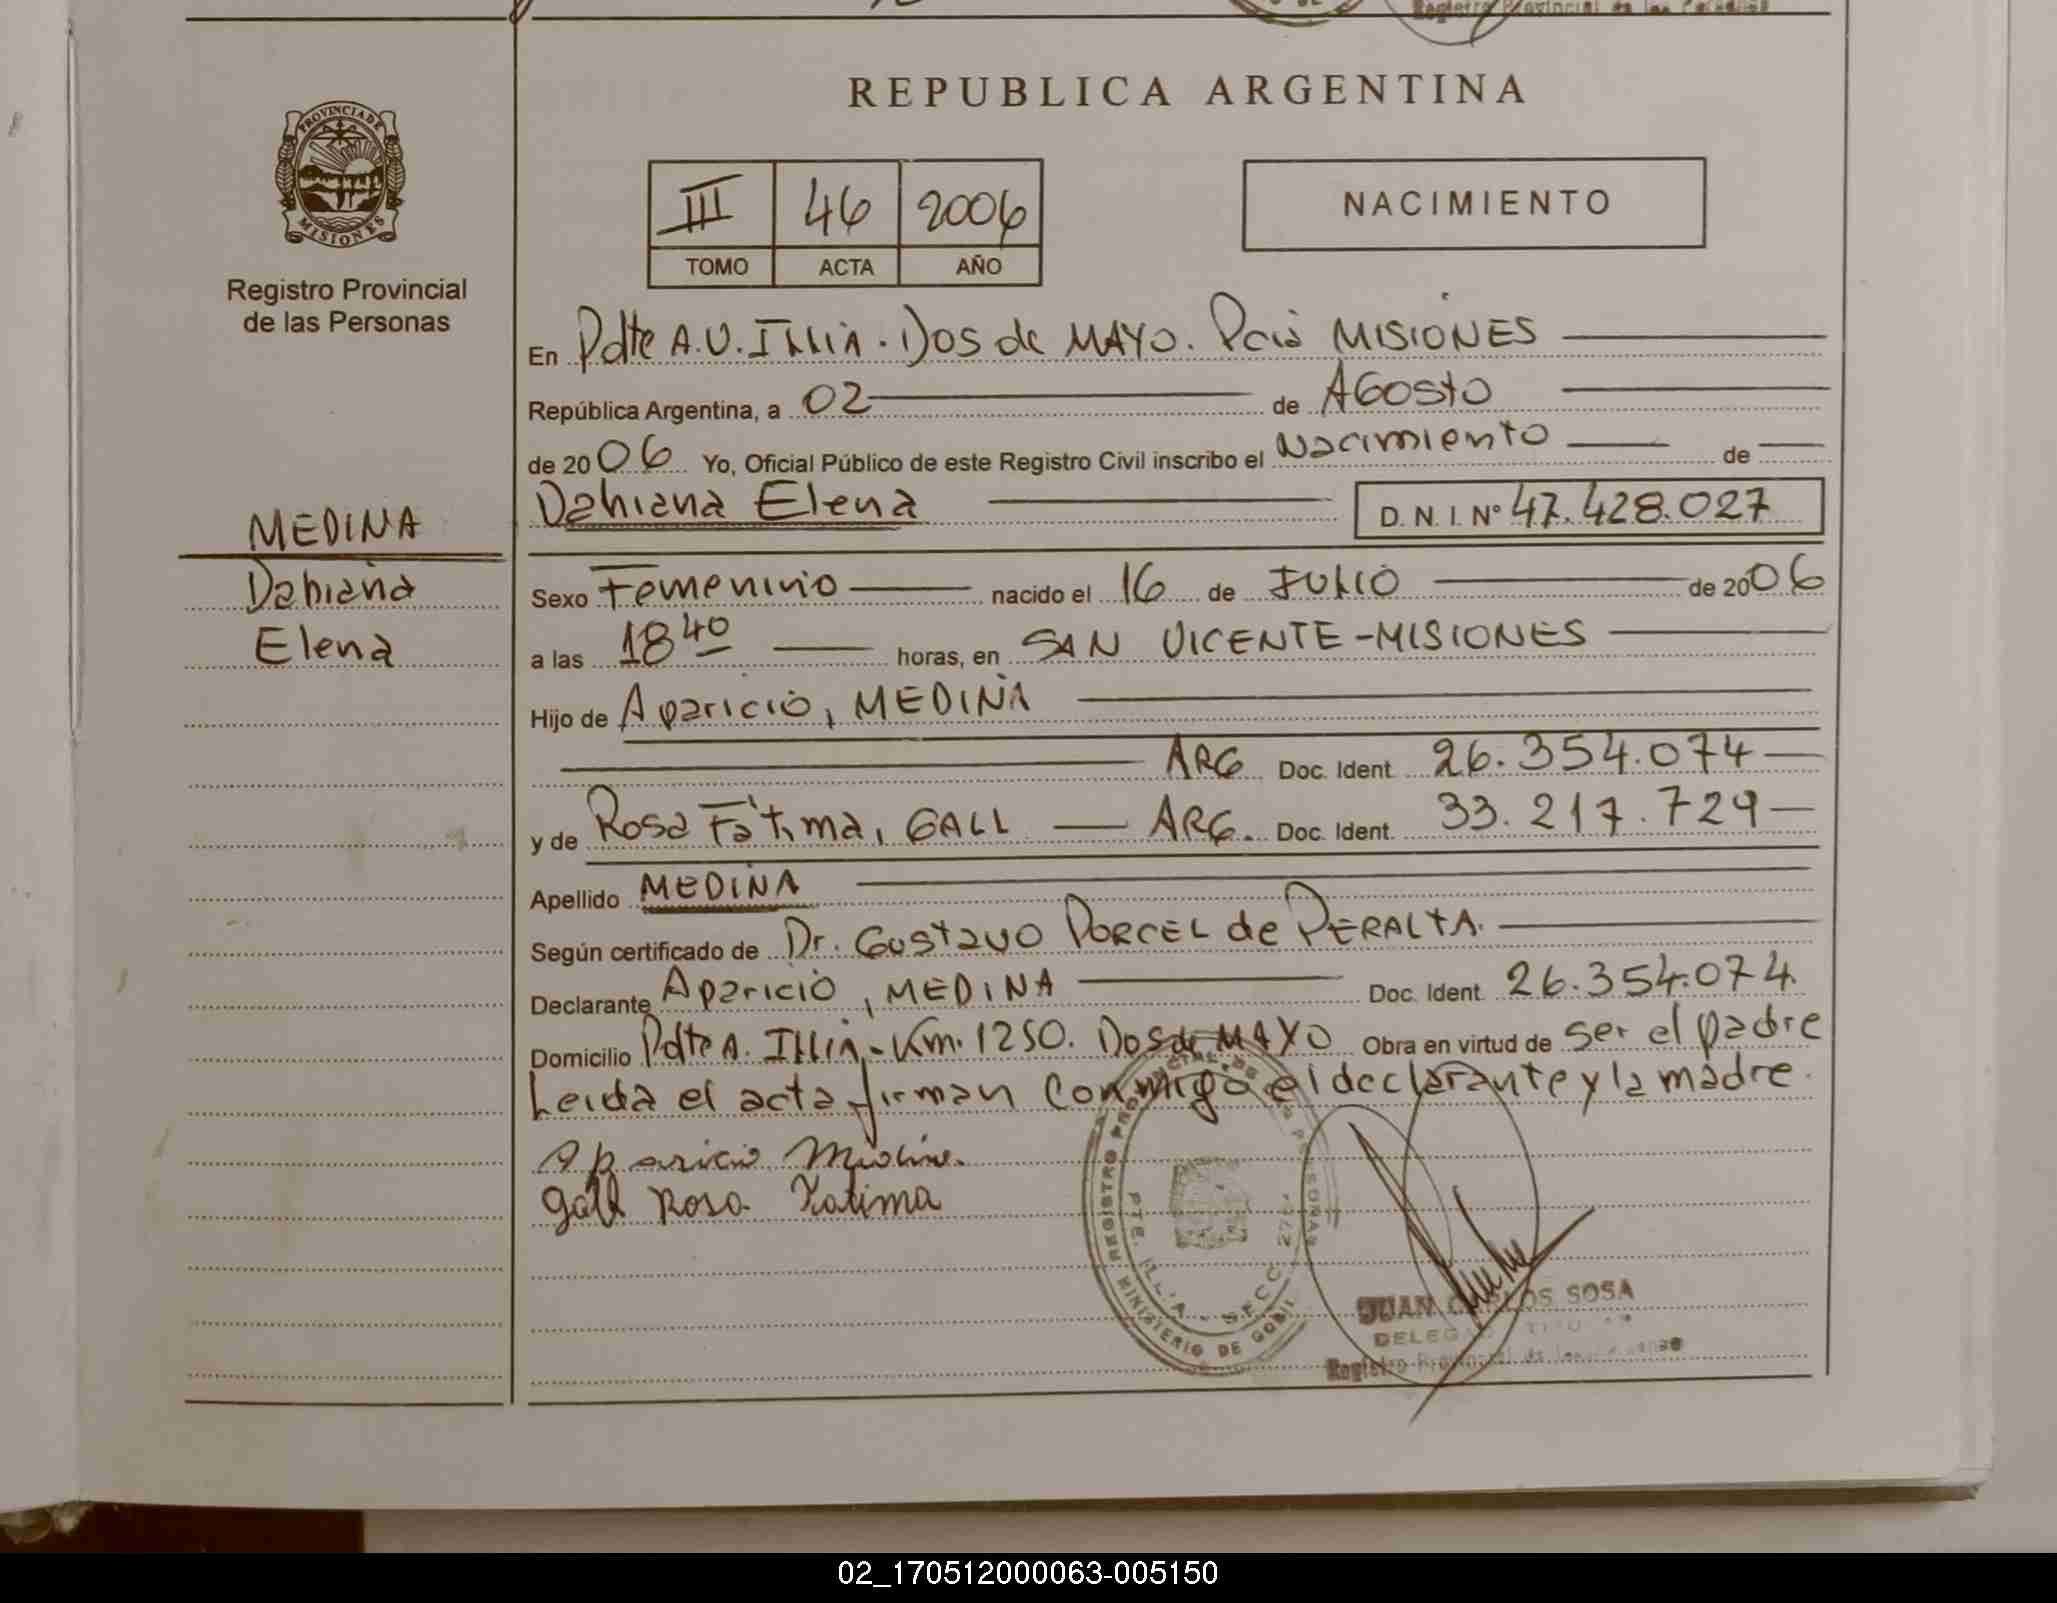 Registro Provincial de las Personas
REPUBLICA ARGENTINA
PROVINCIA DE
MISIONES
Registro Provincial
de las Personas
III 46 2006
TOMO ACTA AÑO
NACIMIENTO
En Pdte A.U. Illia. Dos de MAYO. Pcia MISIONES
República Argentina, a 02 de AGosto
de 2006 Yo, Oficial Público de este Registro Civil inscribo el Nacimiento de
Dahiana Elena D. N. I. Nº 47.428.027
MEDINA
Dahiana
Elena
Sexo Femenino nacido el 16 de JULIO de 2006
a las 18 40 horas, en SAN VICENTE-MISIONES
Hijo de Aparicio, MEDINA
ARG Doc. Ident. 26.354.074
y de Rosa Fátima, GALL ARG. Doc. Ident. 33.217.729
Apellido MEDINA
Según certificado de Dr. Gustavo PORCEL de PERALTA.
Declarante Aparicio, MEDINA Doc. Ident. 26.354.074.
Domicilio Pdte A. Illia - Km. 1250. Dos de MAYO Obra en virtud de ser el padre
Leida el acta firman conmigo el declarante y la madre.
Aparicio Medina.
Gall Rosa Fatima
REGISTRO PROVINCIAL DE LAS PERSONAS
MINISTERIO DE GOBI
PTE. ILLIA - SECC.
JUAN CARLOS SOSA
Registro Provincial de las
02_170512000063-005150